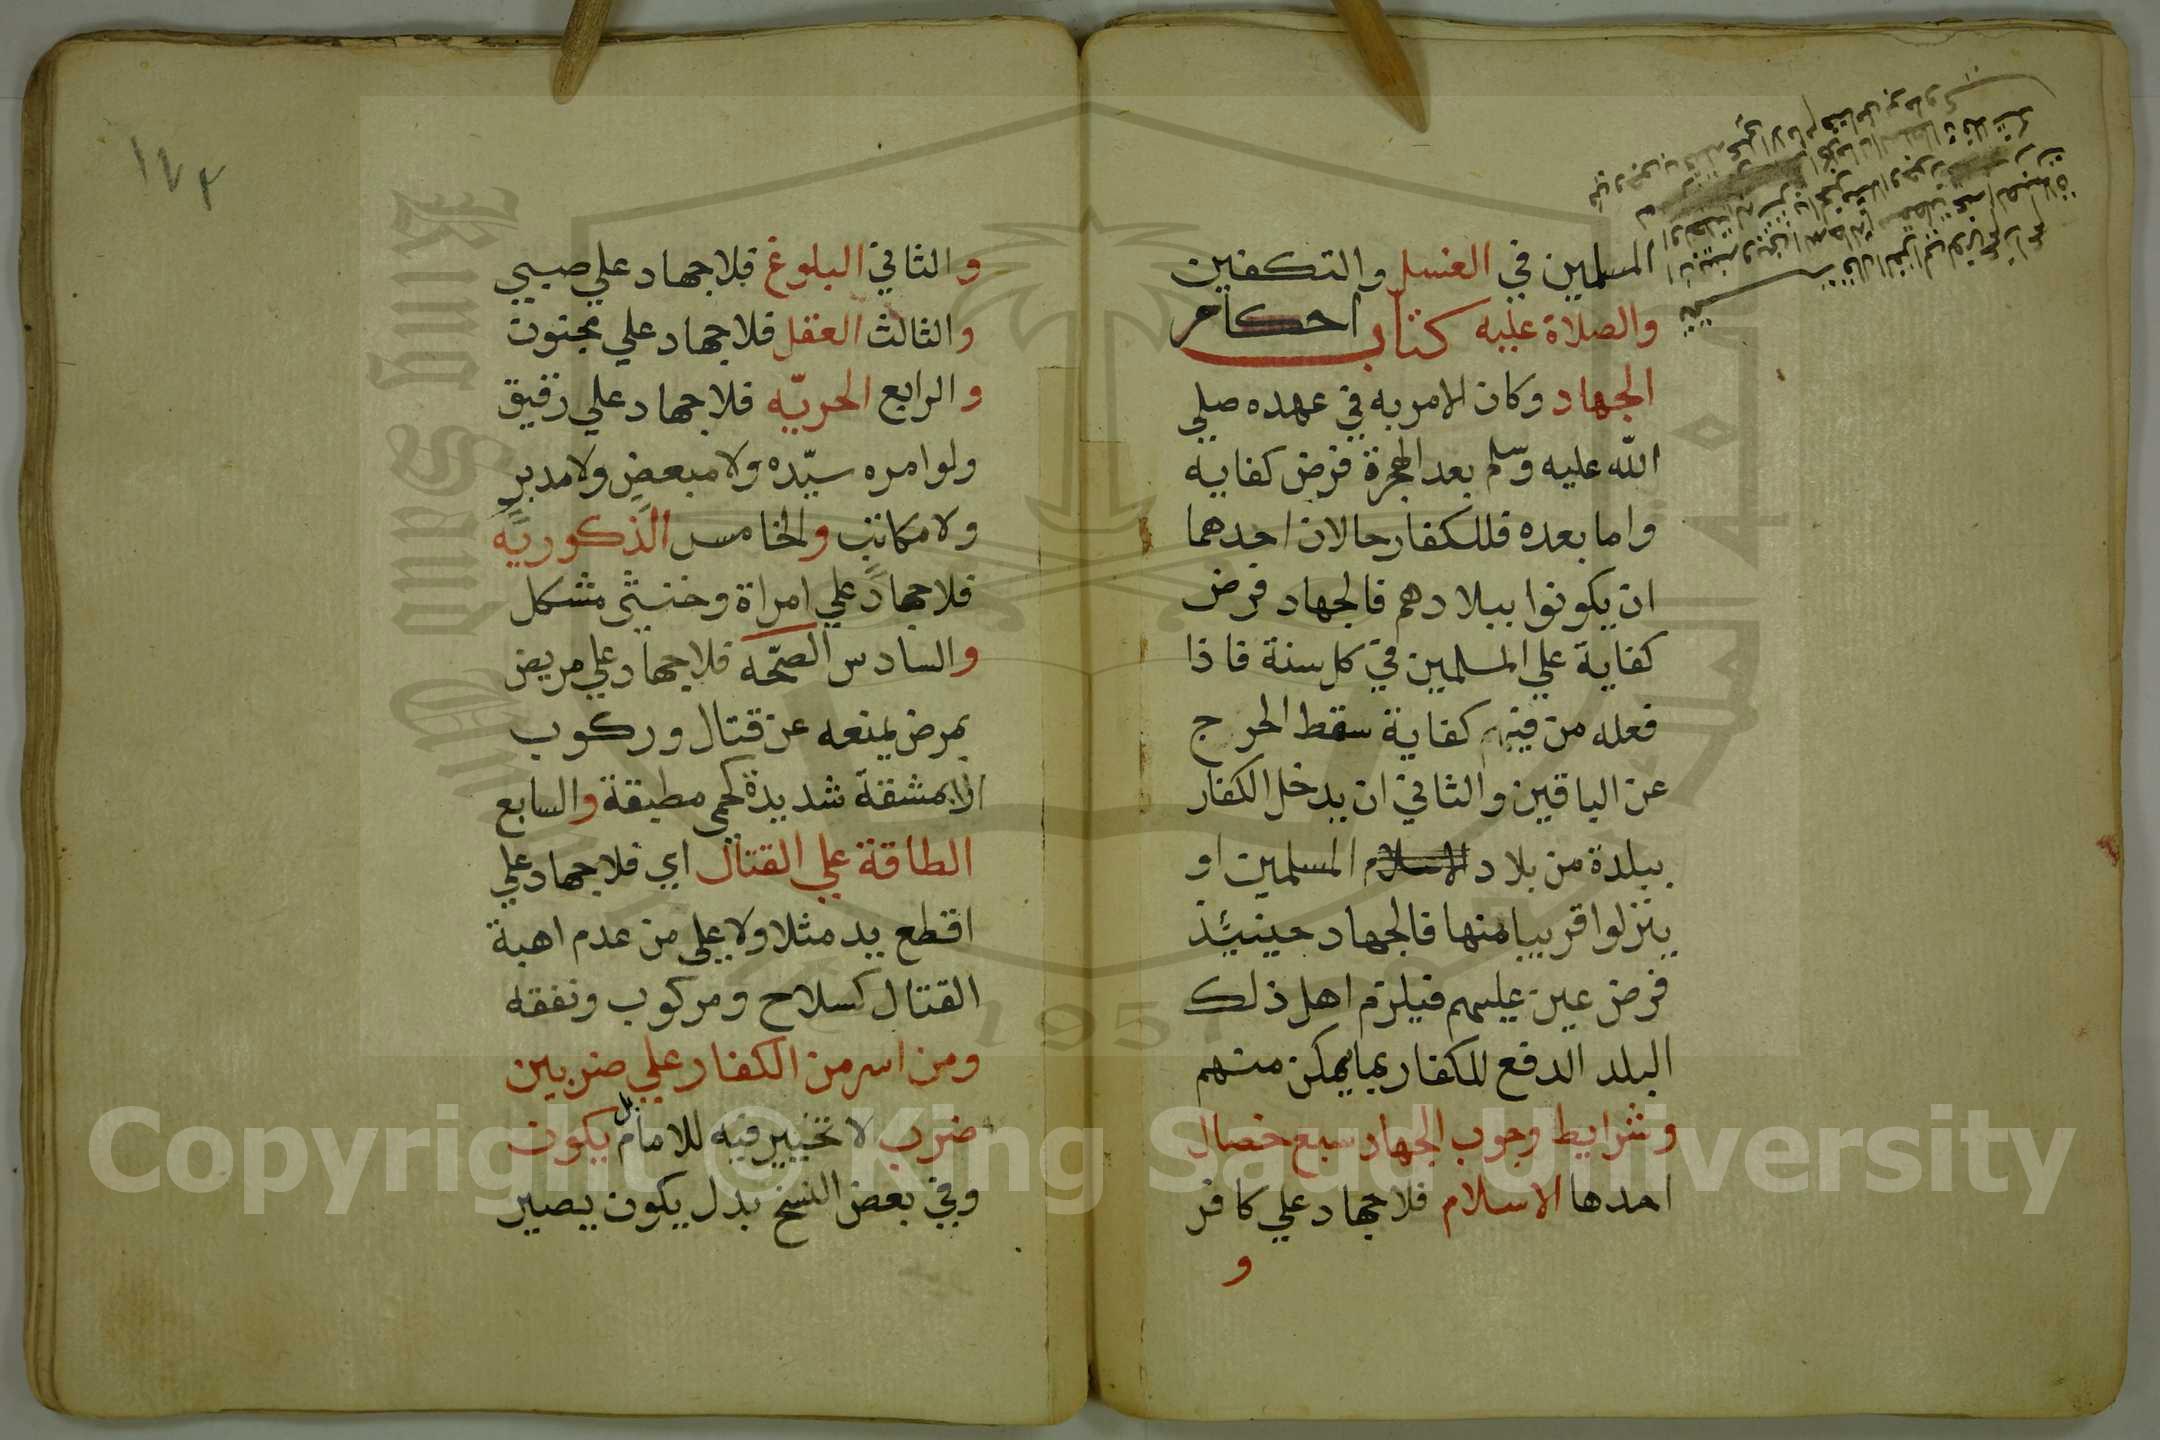 المسلمين في الغسل والتكفين
والصلاة عليه كتاب احكام
الجهاد وكان الامر به في عهده صلي
الله عليه وسلم بعد الهجرة فرض كفاية
واما بعده فللكفار حالان احدهما
ان يكونوا ببلادهم فالجهاد فرض
كفاية علي المسلمين في كل سنة فاذا
فعله من فيهم كفاية سقط الحرج
عن الباقين والثاني ان يدخل الكفار
ببلدة من بلاد الاسلام المسلمين او
ينزلوا قريبا منها فالجهاد حينيئذ
فرض عين عليهم فيلزم اهل ذلك
البلد الدفع للكفار بما يمكن منهم
وشرايط وجوب الجهاد سبع خصال
احدها الاسلام فلا جهاد علي كافر
و
١٧٢
والثاني البلوغ فلا جهاد علي صبي
والثالث العقل فلا جهاد علي مجنون
والرابع الحريّه فلا جهاد علي رقيق
ولو امره سيّده ولا مبعض ولا مدبر
ولا مكاتب والخامس الذكوريّه
فلا جهاد علي امراة وخنثى مشكل
والسادس الصحّه فلا جهاد علي مريض
بمرض يمنعه عن قتال وركوب
الا بمشقة شديدة كحمى مطبقة والسابع
الطاقة علي القتال اي فلا جهاد علي
اقطع يد مثلا ولا علي من عدم اهبة
القتال كسلاح ومركوب ونفقه
ومن اسر من الكفار علي ضربين
ضرب لا تخيير فيه للامام بل يكون
وفي بعض النسخ بدل يكون يصير
King Saud University
1957
Copyright © King Saud University